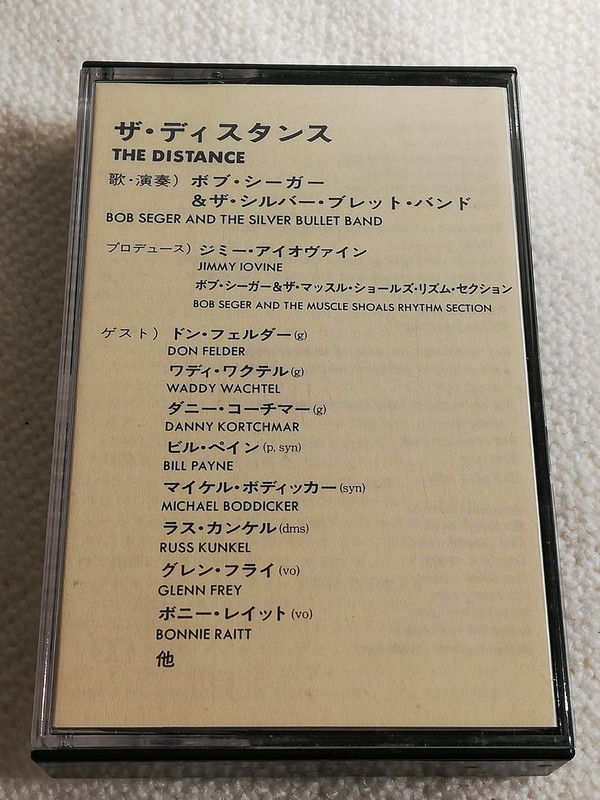 ザ・ディスタンス
THE DISTANCE
歌・演奏）ボブ・シーガー
＆ザ・シルバー・ブレット・バンド
BOB SEGER AND THE SILVER BULLET BAND
プロデュース）ジミー・アイオヴァイン
JIMMY IOVINE
ボブ・シーガー＆ザ・マッスル・ショールズ・リズム・セクション
BOB SEGER AND THE MUSCLE SHOALS RHYTHM SECTION
ゲスト）ドン・フェルダー(g)
DON FELDER
ワディ・ワクテル(g)
WADDY WACHTEL
ダニー・コーチマー(g)
DANNY KORTCHMAR
ビル・ペイン(p, syn)
BILL PAYNE
マイケル・ボディッカー(syn)
MICHAEL BODDICKER
ラス・カンケル(dms)
RUSS KUNKEL
グレン・フライ(vo)
GLENN FREY
ボニー・レイット(vo)
BONNIE RAITT
他